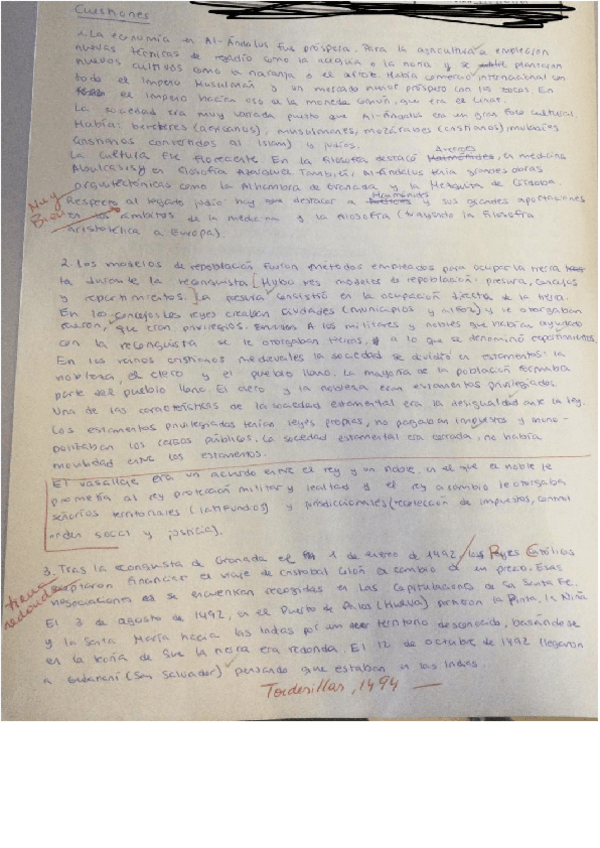 Cuestiones
1. La economía en Al-Ándalus fue próspera. Para la agricultura emplearon
nuevas técnicas de regadío como la acequia o la noria y se plantaron
nuevos cultivos como la naranja o el arroz. Había comercio internacional con
todo el Imperio Musulmán y un mercado menor próspero con los zocos. En
el imperio hacían uso de la moneda común, que era el dinar.
La sociedad era muy variada puesto que Al-Ándalus era un gran foco cultural.
Había: bereberes (africanos), musulmanes, mozárabes (cristianos) muladíes
(cristianos convertidos al Islam) y judíos.
La cultura fue floreciente. En la filosofía destacó Averroes, en medicina
Abulcasis y en filosofía También, Al-Ándalus tenía grandes obras
arquitectónicas como la Alhambra de Granada y la Mezquita de Córdoba.
Muy Bien
Respecto al legado judío hay que destacar a Maimónides y sus grandes aportaciones
en los ámbitos de la medicina y la filosofía (trayendo la filosofía
aristotélica a Europa).
2. Los modelos de repoblación fueron métodos empleados para ocupar la tierra
durante la reconquista. Hubo tres modelos de repoblación: presura, concejos
y repartimientos. La presura consistió en la ocupación directa de la tierra.
En los concejos los reyes creaban ciudades (municipios y alfoz) y le otorgaban
fueros, que eran privilegios. A los militares y nobles que habían ayudado
con la reconquista se le otorgaban tierras, a lo que se denominó repartimientos.
En los reinos cristianos medievales la sociedad se dividía en estamentos: la
nobleza, el clero y el pueblo llano. La mayoría de la población formaba
parte del pueblo llano. El clero y la nobleza eran estamentos privilegiados.
Una de las características de la sociedad estamental era la desigualdad ante la ley.
Los estamentos privilegiados tenían leyes propias, no pagaban impuestos y mono-
polizaban los cargos públicos. La sociedad estamental era cerrada, no había
movilidad entre los estamentos.
El vasallaje era un acuerdo entre el rey y un noble, en el que el noble le
prometía al rey protección militar y lealtad y el rey a cambio le otorgaba
señoríos territoriales (latifundios) y jurisdiccionales (recolección de impuestos, control
orden social y justicia).
3. Tras la conquista de Granada el 1 de enero de 1492, los Reyes Católicos
aceptaron financiar el viaje de Cristobal Colón a cambio de un precio. Esas
tierra redonda
negociaciones se encuentran recogidas en las Capitulaciones de Santa Fe.
El 3 de agosto de 1492, en el Puerto de Palos (Huelva) partieron la Pinta, la Niña
y la Santa María hacia las Indias por un territorio desconocido, basándose
en la teoría de que la tierra era redonda. El 12 de octubre de 1492 llegaron
a Guanahaní (San Salvador) pensando que estaban en las Indias.
Tordesillas, 1494